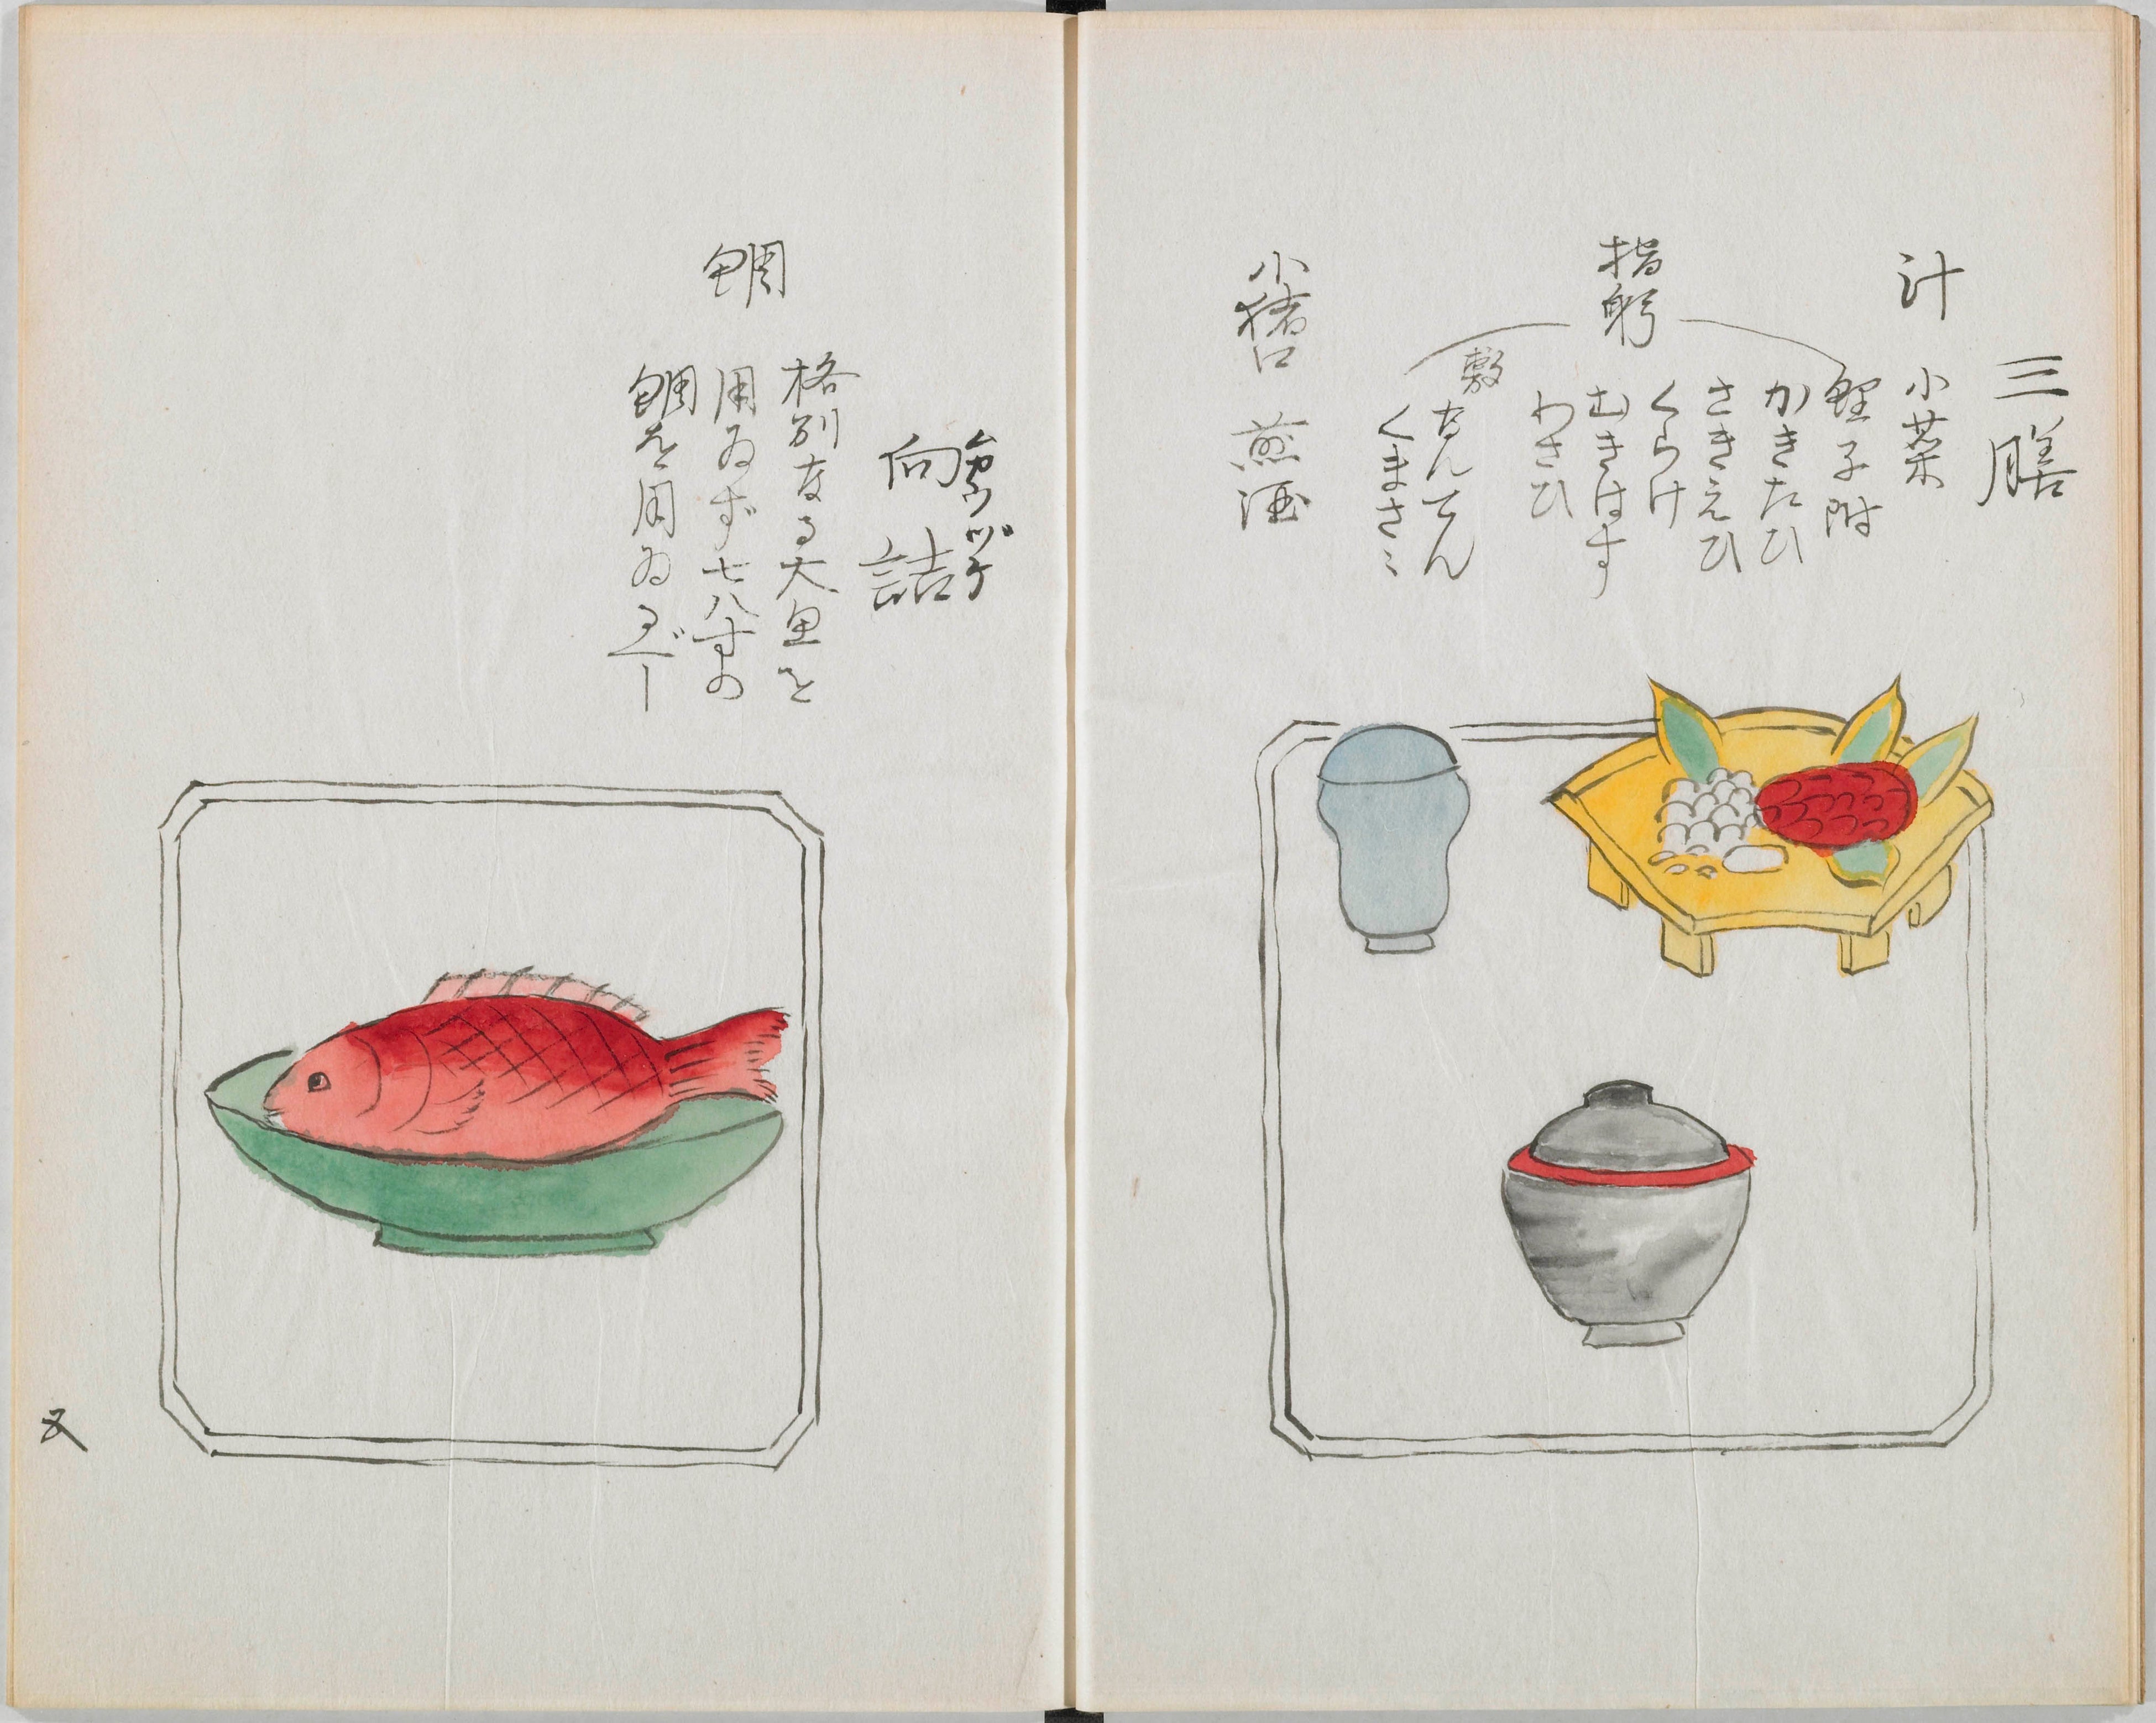 三膳
汁 小菜
指躬
鯉子附
かきたひ
さきえひ
くらけ
むきはす
わさひ
敷 なんてん
くまさゝ
小猪口 煎酒
向詰
鯛
格別なる大魚を
用ゐず七八寸の
鯛を用ゐるべし
又